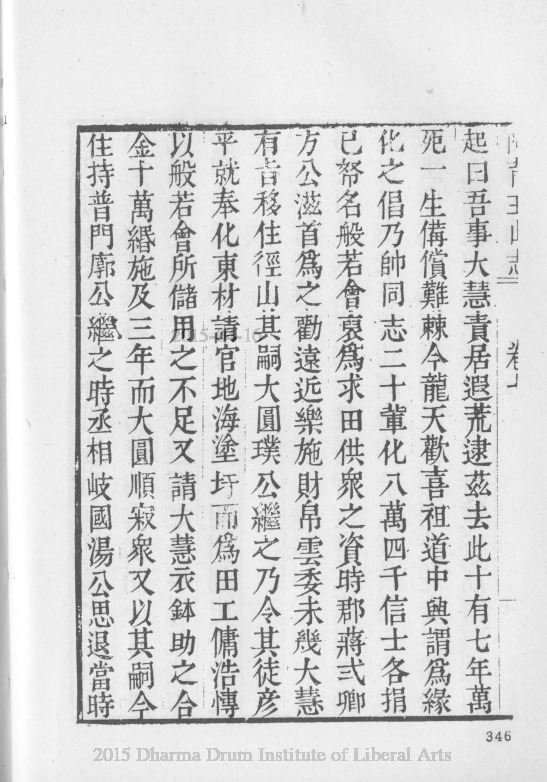 山志 卷七
起曰吾事大慧責居遐荒逮茲去此十有七年萬
死一生備償難棘今龍天歡喜祖道中興謂為緣
化之倡乃帥同志二十輩化八萬四千信士各捐
已帑名般若會裒為求田供眾之資時郡蔣弍卿
方公滋首為之勸遠近樂施財帛雲委未幾大慧
有旨移住徑山其嗣大圓璞公繼之乃令其徒彥
平就奉化東材請官地海塗圩而為田工傭浩慱
以般若會所儲用之不足又請大慧衣鉢助之合
金十萬緡施及三年而大圓順寂眾又以其嗣今
住持普門廓公繼之時丞相岐國湯公思退當時
346
2015 Dharma Drum Institute of Liberal Arts